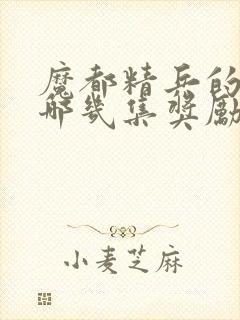 魔都精兵的
哪幾集獎勵
小麦芝麻